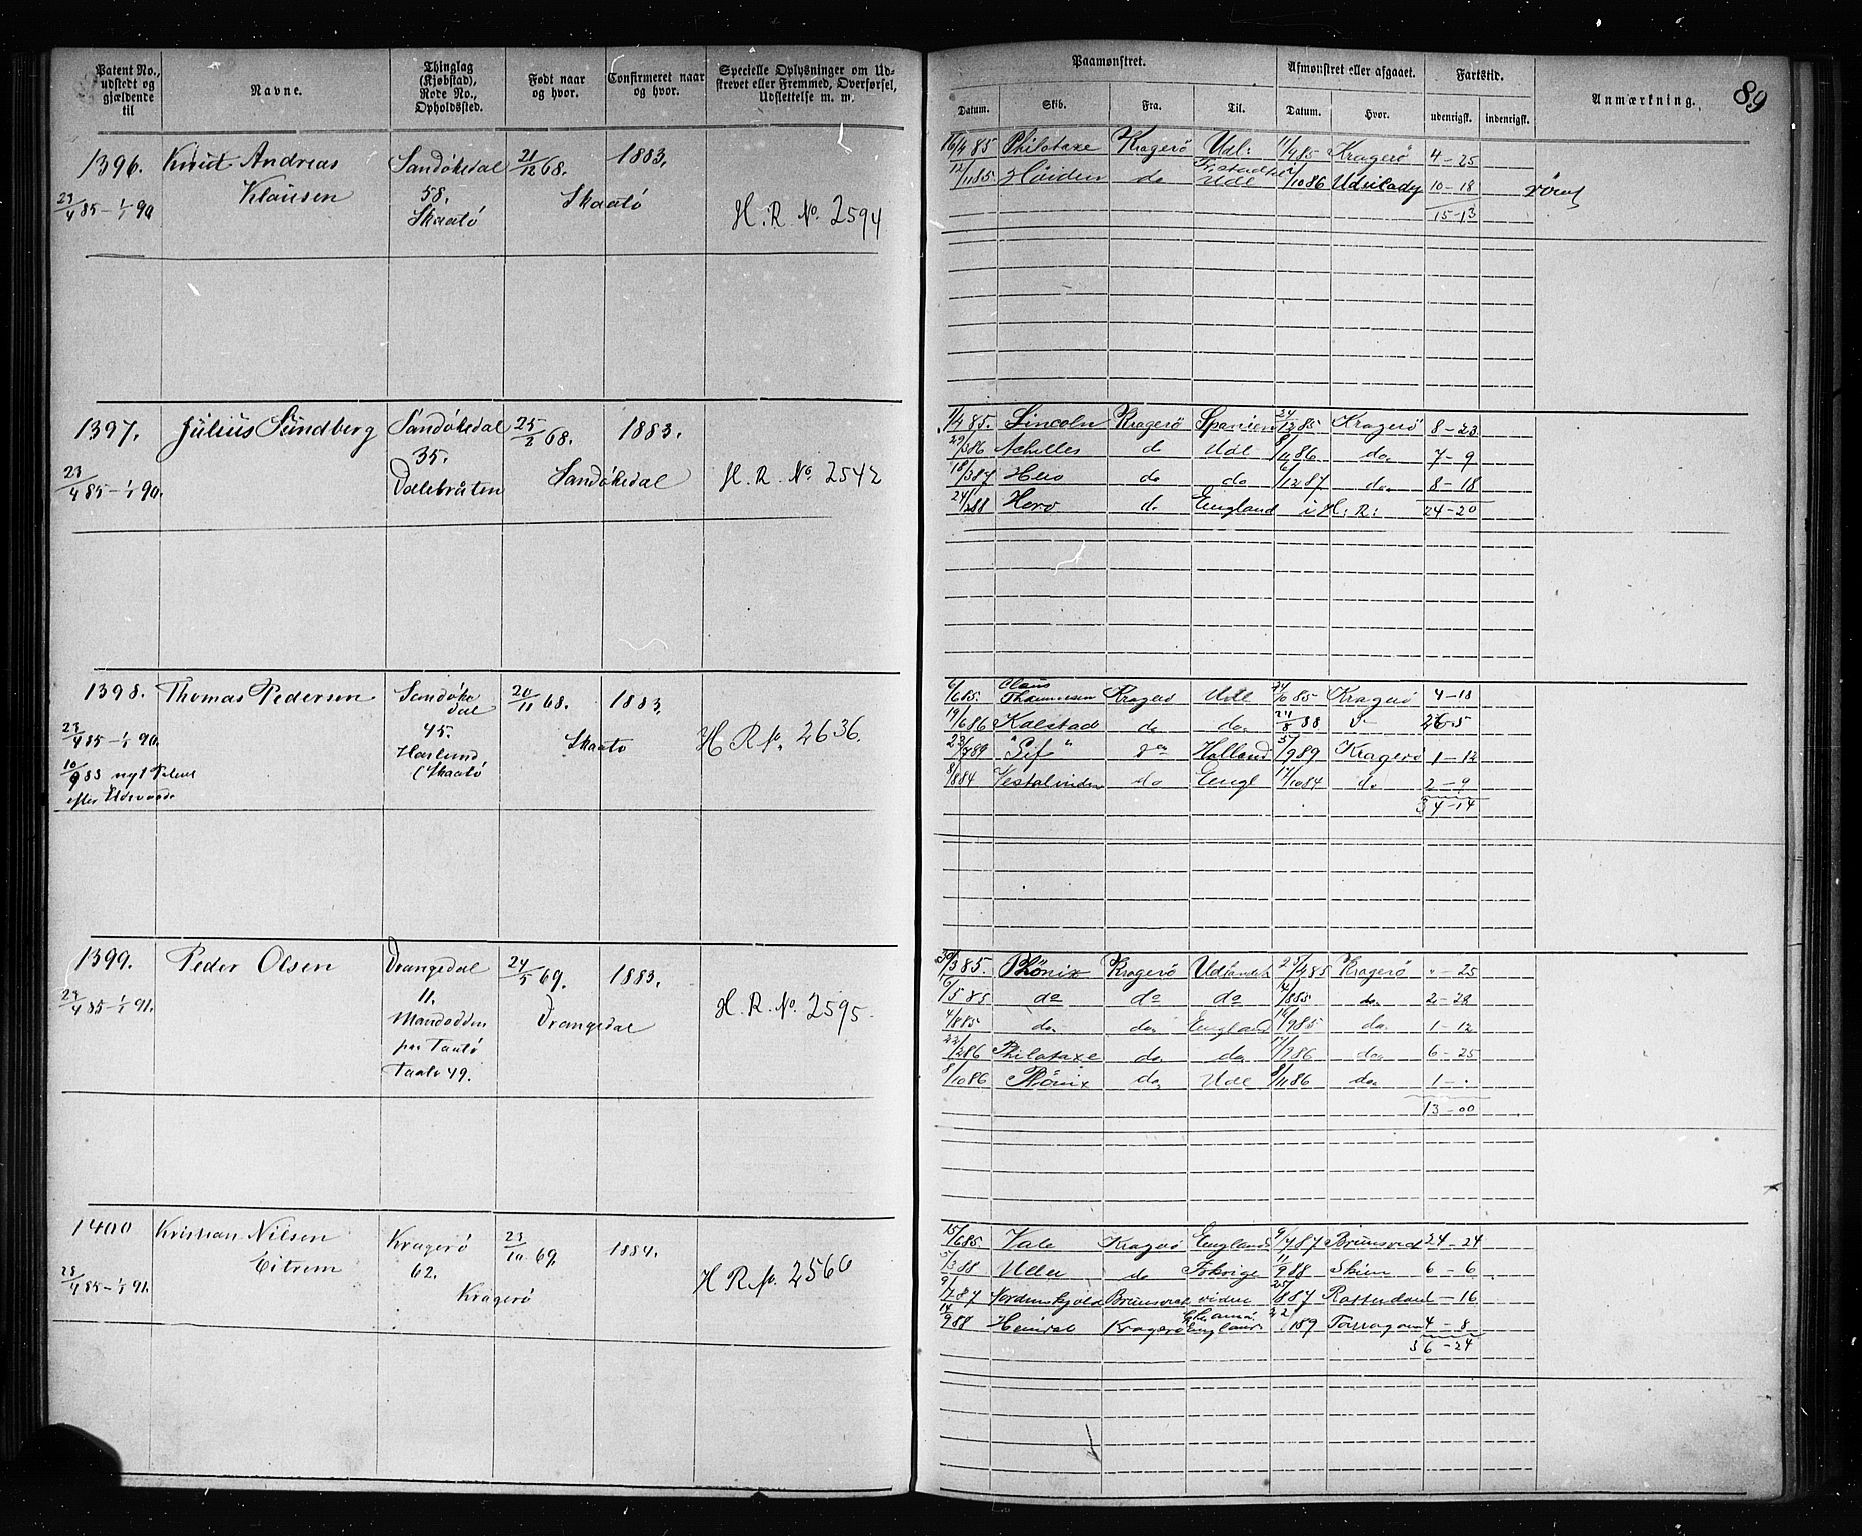 Patent No., udstedt og gjældende til
Navne.
Thinglag (Kjøbstad), Rode No., Opholdssted.
Født naar og hvor.
Confirmeret naar og hvor.
Specielle Oplysninger om Udskrevet eller Fremmed, Overførsel, Udslettelse m. m.
Paamønstret.
Afmønstret eller afgaaet.
Fartstid.
Anmærkning.
89
Datum. Skib. Fra. Til. Datum. Hvor. udenrigsk. indenrigsk.
1396. Knut Andreas Sandøkedal 21/12 68. 1883.
23/4 85 - 1/1 90 Klausen 58. Skaatö
Skaatö H. R. No. 2594
16/4 85 Philotaxe Kragerö Udl. Kragerö 4 - 25
12/11 85 Höiden do Udl 10 86 10 - 18 römt
15 - 13
1397. Julius Sundberg Sandøkedal 25/2 68. 1883.
35.
23/4 85 - 1/1 90. Dalebråten Sandøkedal H. R. No 2542
1/4 85. Lincoln Kragerö Spanien 24/12 85 Kragerö 8 - 23
29/3 86 Achilles do Udl 8/11 86 do 7 - 9
18/3 87 Hero do do 6/12 87 do 8 - 18
24/2 88 Hero do England i H: R: 24 - 20
1398. Thomas Pedersen Sandøkedal 20/11 68. 1883.
45.
23/4 85 - 1/1 90. Skaatö H R No. 2636
10/9 83 nyt Patent (Skaatö
efter
6/6 85. Claus Thommesen Kragerö Udl 24/10 85 Kragerö 4 - 18
19/6 86 Kalstad do do 88 26 - 5
23/7 89 "Sif" do Holland 9 89 Kragerö 1 - 12
8/8 84 Vestalinden do Engl 17/10 84 do 2 - 9
34 - 14
1399. Peder Olsen Drangedal 24/5 69. 1883.
23/4 85 - 1/1 91. 11.
Drangedal H. R. No. 2595.
Taatö 49.
30/3 85. Phönix Kragerö 25/4 85 Kragerö " - 25
6/5 85 do do do 8 85 do 2 - 28
4/8 85 do do England 16/9 85 do 1 - 12
22/2 86 Philotaxe do do 9 86 do 6 - 25
8/10 86 Phönix do Udl 8/11 86 do 1 - .
13 - 00
1400 Kristian Nilsen Kragerö 23/10 69. 1884.
Eitrem 62.
23/4 85 - 1/1 91. Kragerö H R No. 2560
15/6 85 Vale Kragerö England 9/7 87 Brunsvick 24 - 24
5/3 88 Uller do 11/9 88 Skien 6 - 6
9/7 87 Nordenskjöld Brunsvick viden 25/8 87 Rotterdam 1 - 16
14/9 88 Heimdal Kragerö England 22/1 89 Tarragona 4 - 8
36 - 24